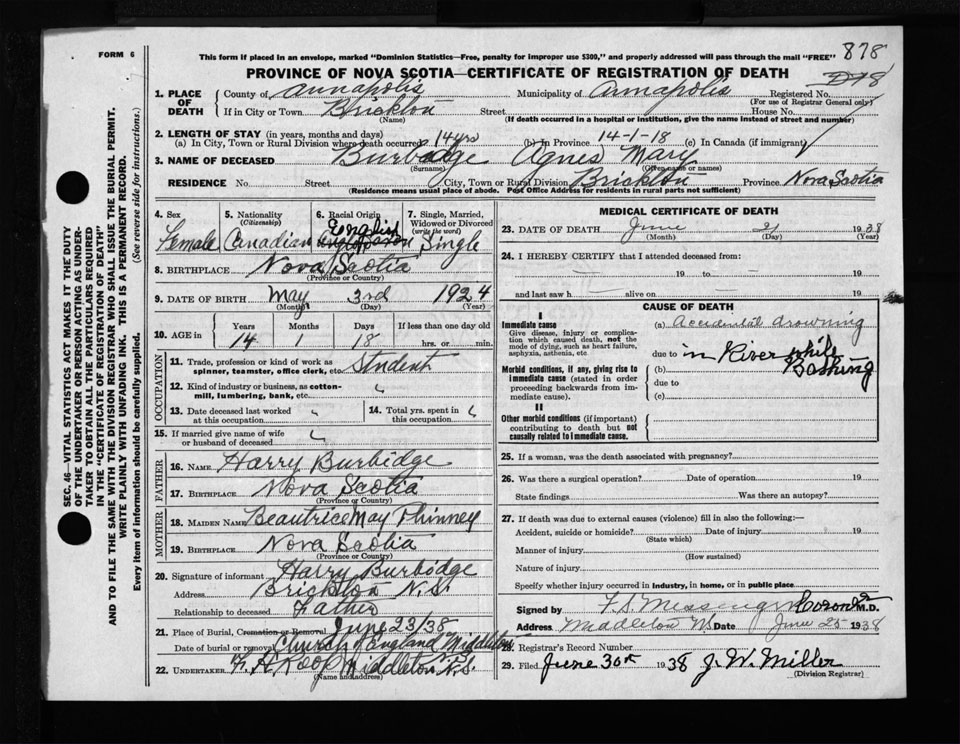 FORM 6
This form if placed in an envelope, marked "Dominion Statistics—Free, penalty for improper use $300," and properly addressed will pass through the mail "FREE"
878
PROVINCE OF NOVA SCOTIA—CERTIFICATE OF REGISTRATION OF DEATH
1. PLACE OF DEATH
County of Annapolis Municipality of Annapolis Registered No.
(For use of Registrar General only)
If in City or Town Brickton Street House No.
(Name) (If death occurred in a hospital or institution, give the name instead of street and number)
2. LENGTH OF STAY (in years, months and days)
(a) In City, Town or Rural Division where death occurred 14 yrs (b) In Province 14-1-18 (c) In Canada (if immigrant)
3. NAME OF DECEASED Burbidge Agnes Mary
(Surname) (Given name or names)
RESIDENCE No. Street City, Town or Rural Division Brickton Province Nova Scotia
(Residence means usual place of abode. Post Office Address for residents in rural parts not sufficient)
4. Sex Female
5. Nationality (Citizenship) Canadian
6. Racial Origin English
7. Single, Married, Widowed or Divorced (write the word) Single
8. BIRTHPLACE Nova Scotia
(Province or Country)
9. DATE OF BIRTH May 3rd 1924
(Month) (Day) (Year)
10. AGE in Years 14 Months 1 Days 18 If less than one day old hrs. or min.
OCCUPATION
11. Trade, profession or kind of work as spinner, teamster, office clerk, etc. Student
12. Kind of industry or business, as cotton-mill, lumbering, bank, etc.
13. Date deceased last worked at this occupation
14. Total yrs. spent in this occupation
15. If married give name of wife or husband of deceased
FATHER
16. NAME Harry Burbidge
17. BIRTHPLACE Nova Scotia
(Province or Country)
MOTHER
18. MAIDEN NAME Beautrice May Phinney
19. BIRTHPLACE Nova Scotia
(Province or Country)
20. Signature of informant Harry Burbidge
Address Brickton N.S.
Relationship to deceased Father
21. Place of Burial, Cremation or Removal
Date of burial or removal June 23/38
Church of England Middleton
22. UNDERTAKER F. H. Roop Middleton N.S.
(Name and address)
MEDICAL CERTIFICATE OF DEATH
23. DATE OF DEATH June 21 1938
(Month) (Day) (Year)
24. I HEREBY CERTIFY that I attended deceased from:
19 to 19
and last saw h alive on 19
CAUSE OF DEATH
I
Immediate cause
Give disease, injury or complication which caused death, not the mode of dying, such as heart failure, asphyxia, asthenia, etc
(a) Accidental drowning
due to in River while Bathing
Morbid conditions, if any, giving rise to immediate cause (stated in order proceeding backwards from immediate cause).
(b)
due to
(c)
II
Other morbid conditions (if important) contributing to death but not causally related to immediate cause.
25. If a woman, was the death associated with pregnancy?
26. Was there a surgical operation? Date of operation 19
State findings Was there an autopsy?
27. If death was due to external causes (violence) fill in also the following:—
Accident, suicide or homicide? Date of injury 19
(State which)
Manner of injury
(How sustained)
Nature of injury
Specify whether injury occurred in industry, in home, or in public place
Signed by F. S. Messenger Coroner M.D.
Address Middleton NS Date June 25 1938
28. Registrar's Record Number
29. Filed June 30th 1938 J. W. Miller
(Division Registrar)
SEC. 46—VITAL STATISTICS ACT MAKES IT THE DUTY OF THE UNDERTAKER OR PERSON ACTING AS UNDERTAKER TO OBTAIN ALL THE PARTICULARS REQUIRED IN THE "CERTIFICATE OF REGISTRATION OF DEATH"
AND TO FILE THE SAME WITH THE DIVISION REGISTRAR WHO SHALL ISSUE THE BURIAL PERMIT.
WRITE PLAINLY WITH UNFADING INK. THIS IS A PERMANENT RECORD.
Every item of information should be carefully supplied. (See reverse side for instructions.)